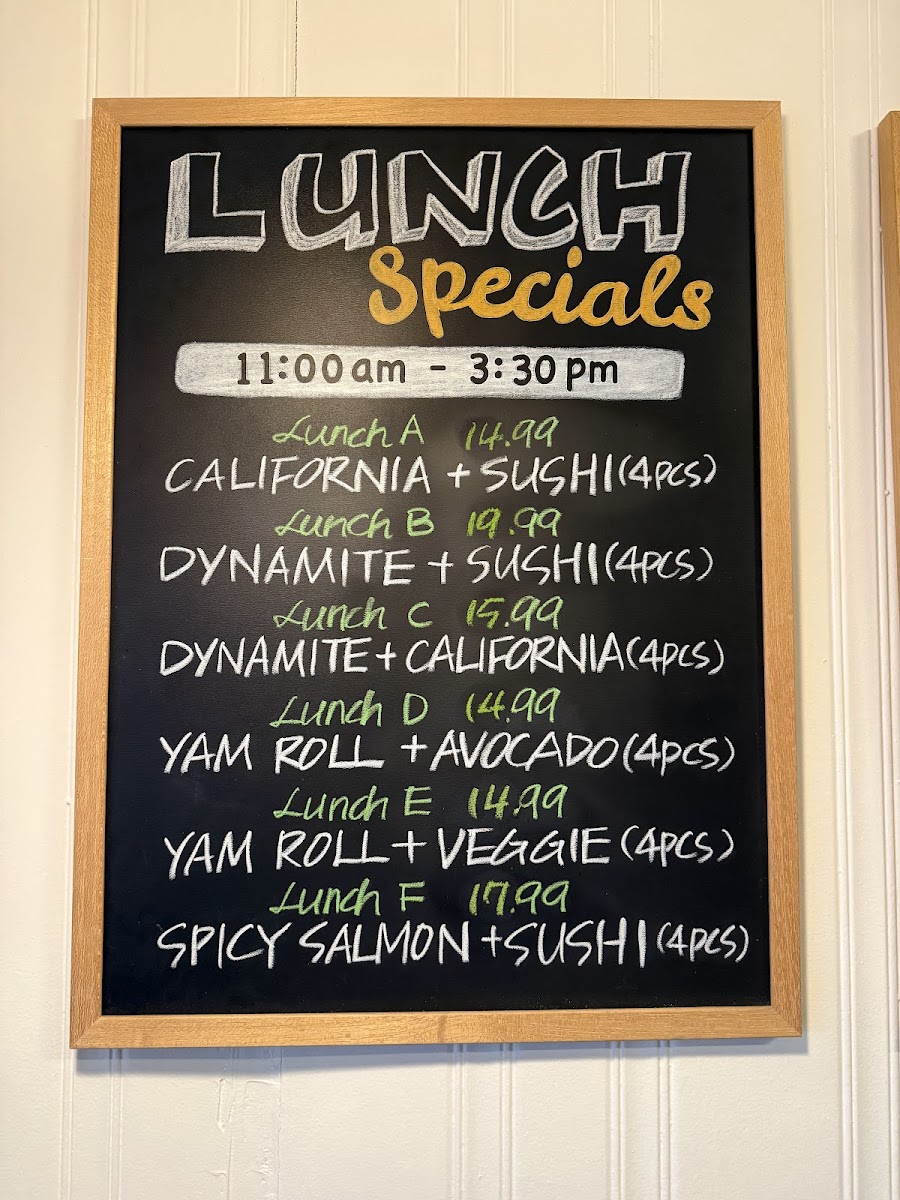 LUNCH
Specials
11:00 am - 3:30 pm
Lunch A 14.99
CALIFORNIA + SUSHI (4pcs)
Lunch B 19.99
DYNAMITE + SUSHI (4pcs)
Lunch C 15.99
DYNAMITE + CALIFORNIA (4pcs)
Lunch D 14.99
YAM ROLL + AVOCADO (4pcs)
Lunch E 14.99
YAM ROLL + VEGGIE (4pcs)
Lunch F 17.99
SPICY SALMON + SUSHI (4pcs)